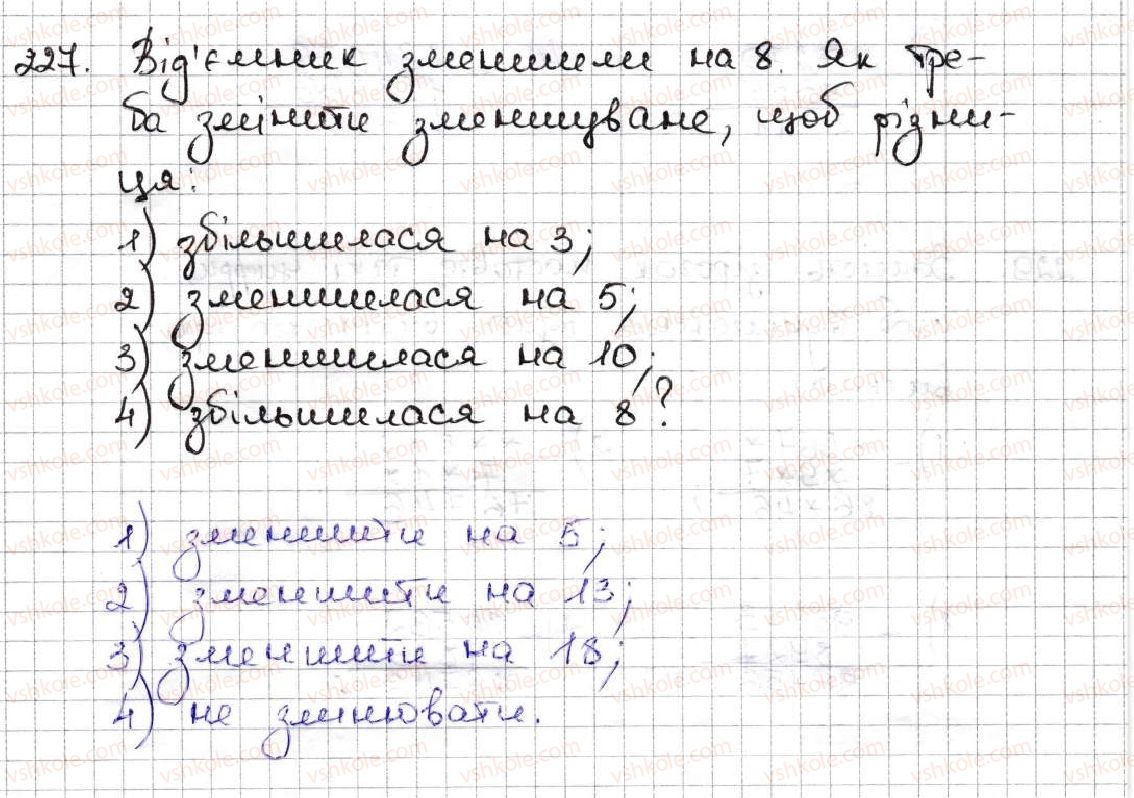 227. Від'ємник зменшили на 8. Як тре-
ба змінити зменшуване, щоб різни-
ця:
1) збільшилася на 3;
2) зменшилася на 5;
3) зменшилася на 10;
4) збільшилася на 8?
1) зменшити на 5;
2) зменшити на 13;
3) зменшити на 18;
4) не змінювати.